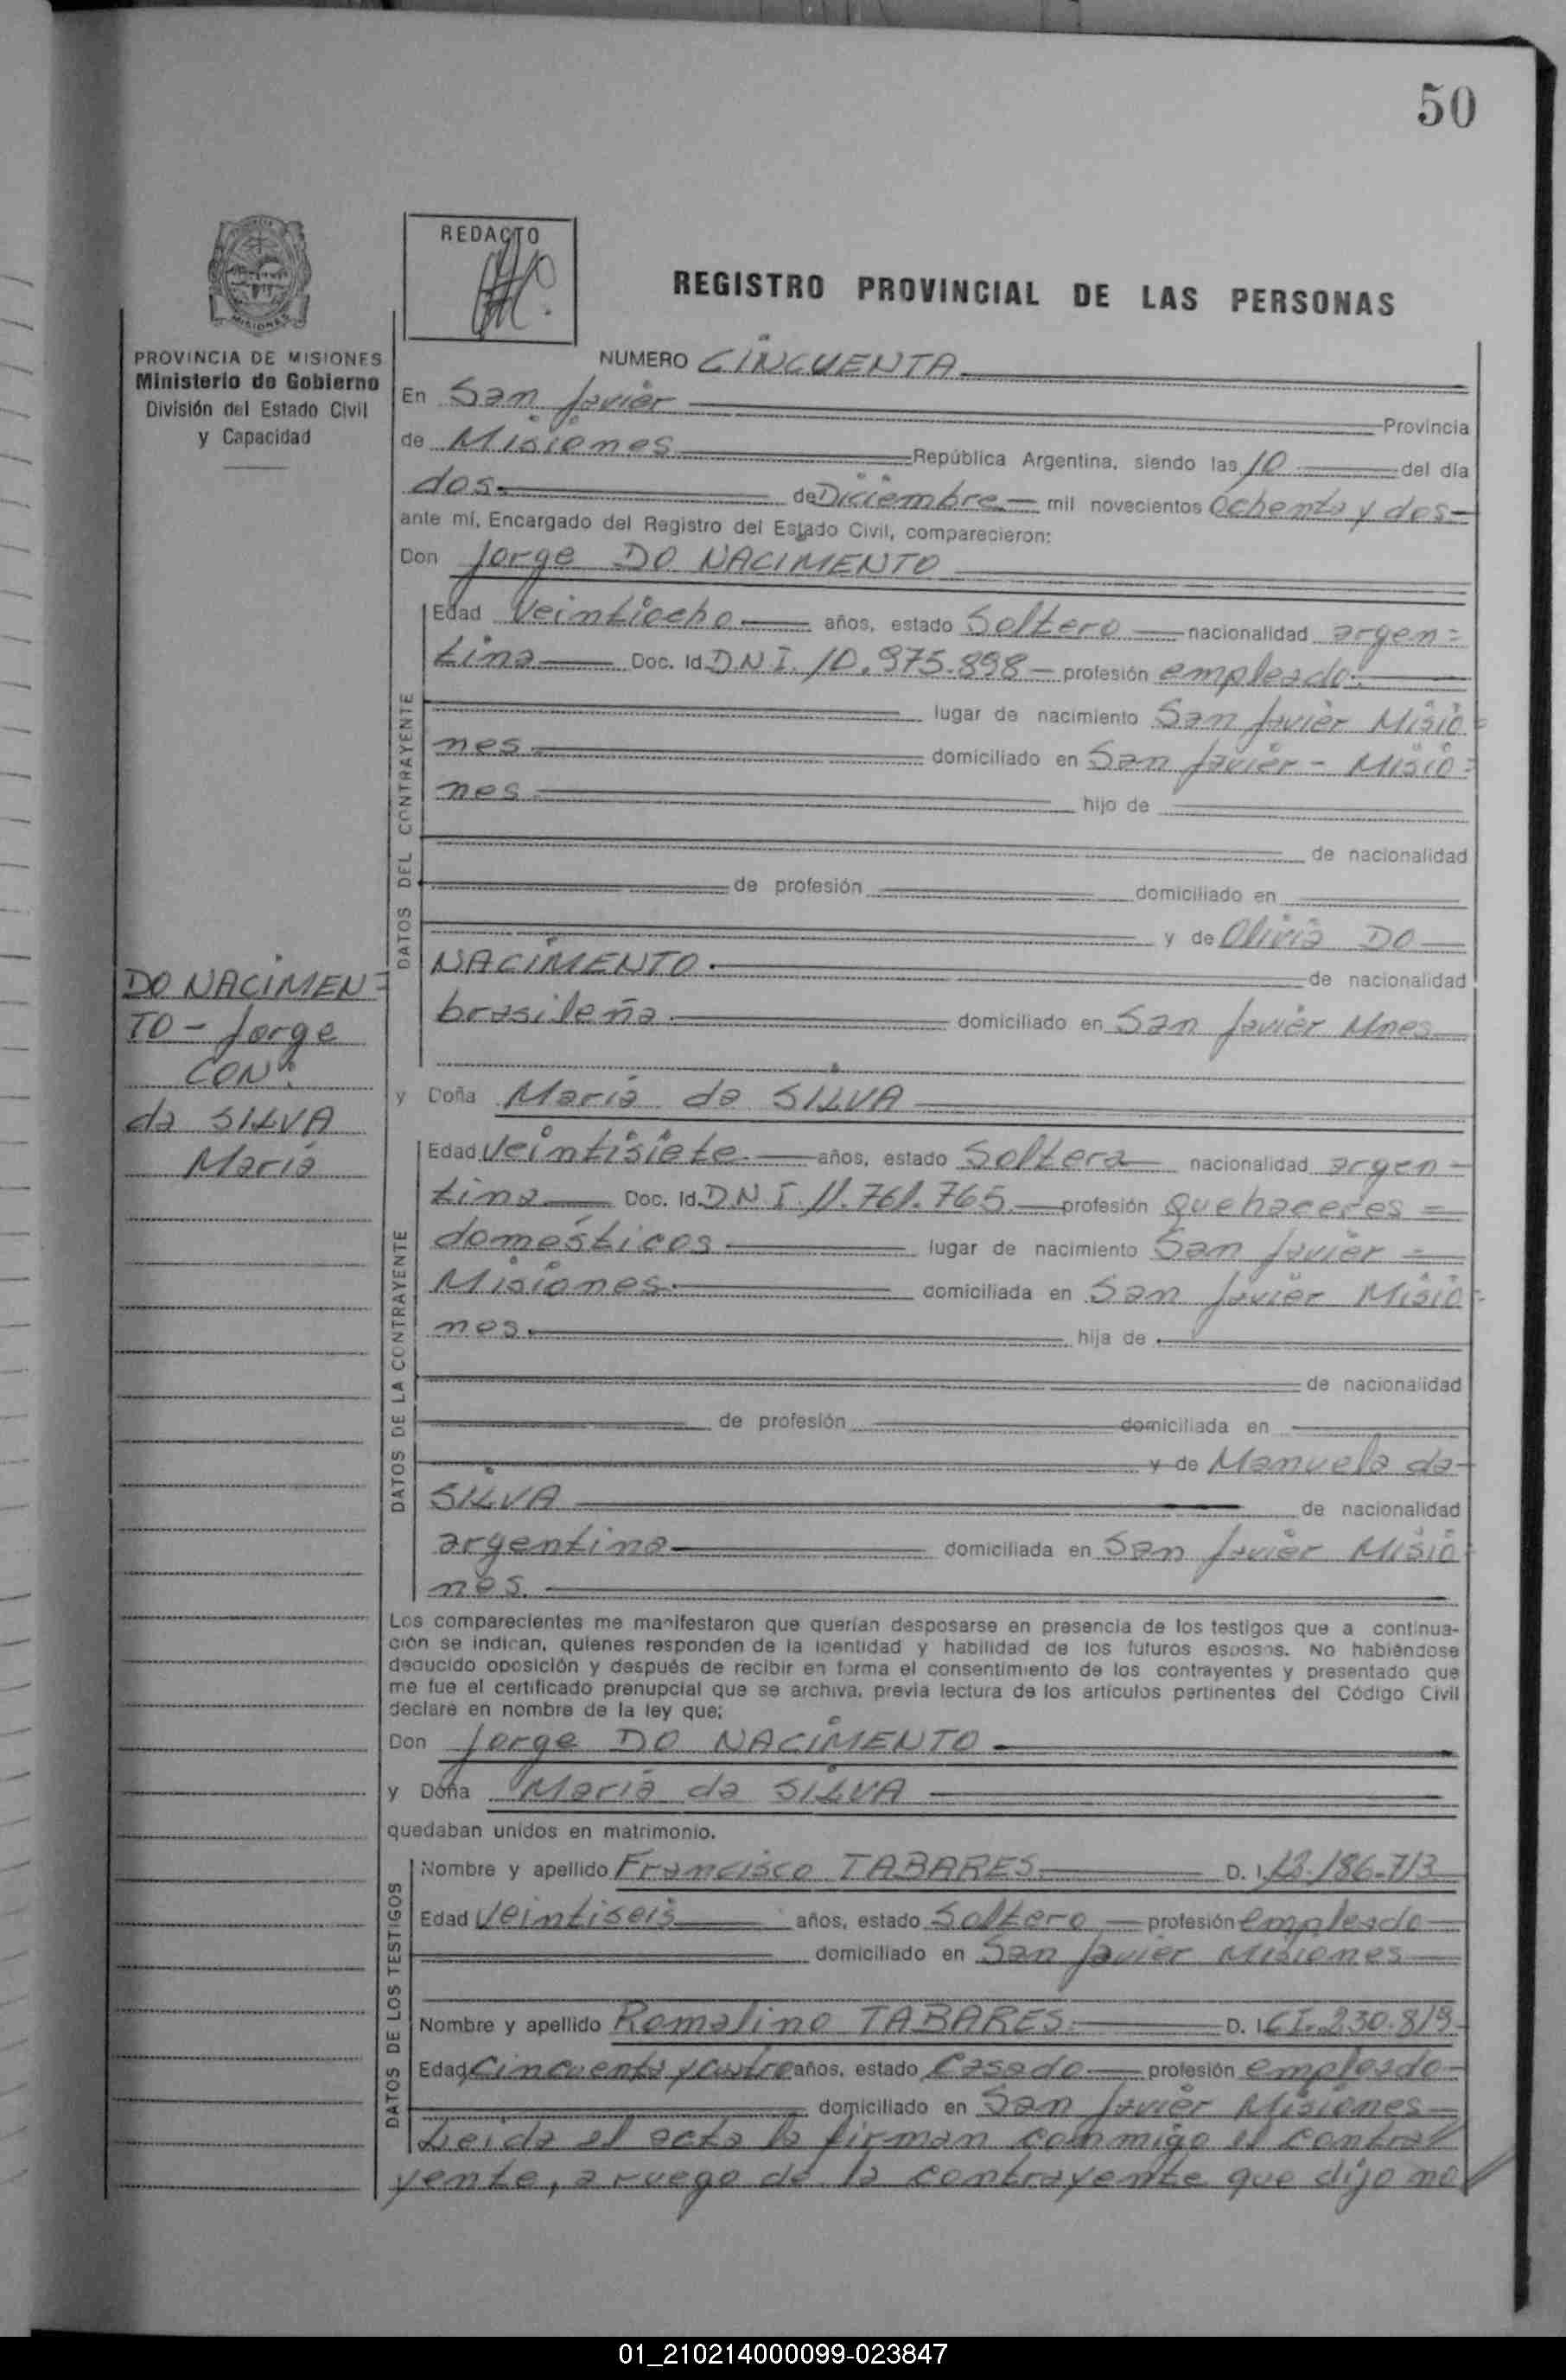 50
REDACTO
REGISTRO PROVINCIAL DE LAS PERSONAS
MISIONES
PROVINCIA DE MISIONES
Ministerio de Gobierno
División del Estado Civil
y Capacidad
NUMERO CINCUENTA
En San Javier Provincia
de Misiones República Argentina, siendo las 10 del día
dos de Diciembre mil novecientos Ochenta y dos
ante mí, Encargado del Registro del Estado Civil, comparecieron:
Don Jorge DO NACIMENTO
DATOS DEL CONTRAYENTE
Edad Veintiocho años, estado Soltero nacionalidad argen=
tina Doc. Id. D.N.I. 10.975.898 profesión empleado
lugar de nacimiento San Javier Misio=
nes domiciliado en San Javier - Misio=
nes hijo de
de nacionalidad
de profesión domiciliado en
y de Olivia DO
NACIMENTO. de nacionalidad
brasileña domiciliado en San Javier Mnes
DO NACIMEN=
TO - Jorge
CON:
da SILVA
María
y Doña María da SILVA
DATOS DE LA CONTRAYENTE
Edad Veintisiete años, estado Soltera nacionalidad argen-
tina Doc. Id. D.N.I. 11.761.765 profesión Quehaceres =
domésticos lugar de nacimiento San Javier =
Misiones. domiciliada en San Javier Misio=
nes. hija de
de nacionalidad
de profesión domiciliada en
y de Manuela da
SILVA de nacionalidad
argentina domiciliada en San Javier Misio=
nes.
Los comparecientes me manifestaron que querían desposarse en presencia de los testigos que a continua-
ción se indican, quienes responden de la identidad y habilidad de los futuros esposos. No habiéndose
deducido oposición y después de recibir en forma el consentimiento de los contrayentes y presentado que
me fue el certificado prenupcial que se archiva, previa lectura de los artículos pertinentes del Código Civil
declaré en nombre de la ley que:
Don Jorge DO NACIMENTO
y Doña María da SILVA
quedaban unidos en matrimonio.
DATOS DE LOS TESTIGOS
Nombre y apellido Francisco TABARES D. I. 12.186.713
Edad Veintiseis años, estado Soltero profesión empleado
domiciliado en San Javier Misiones
Nombre y apellido Romalino TABARES D. I. C.I. 230.819
Edad Cincuenta y cuatro años, estado Casado profesión empleado
domiciliado en San Javier Misiones
Leida el acta la firman conmigo el contra/
yente, a ruego de la contrayente que dijo no
01_210214000099-023847